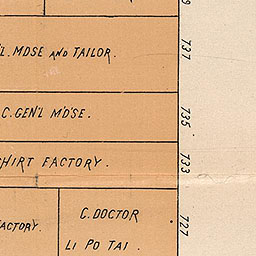 'L. MDSE AND TAILOR.
737
C. GEN'L M'D'SE.
735
SHIRT FACTORY.
733
C. DOCTOR
727
FACTORY.
LI PO TAI.